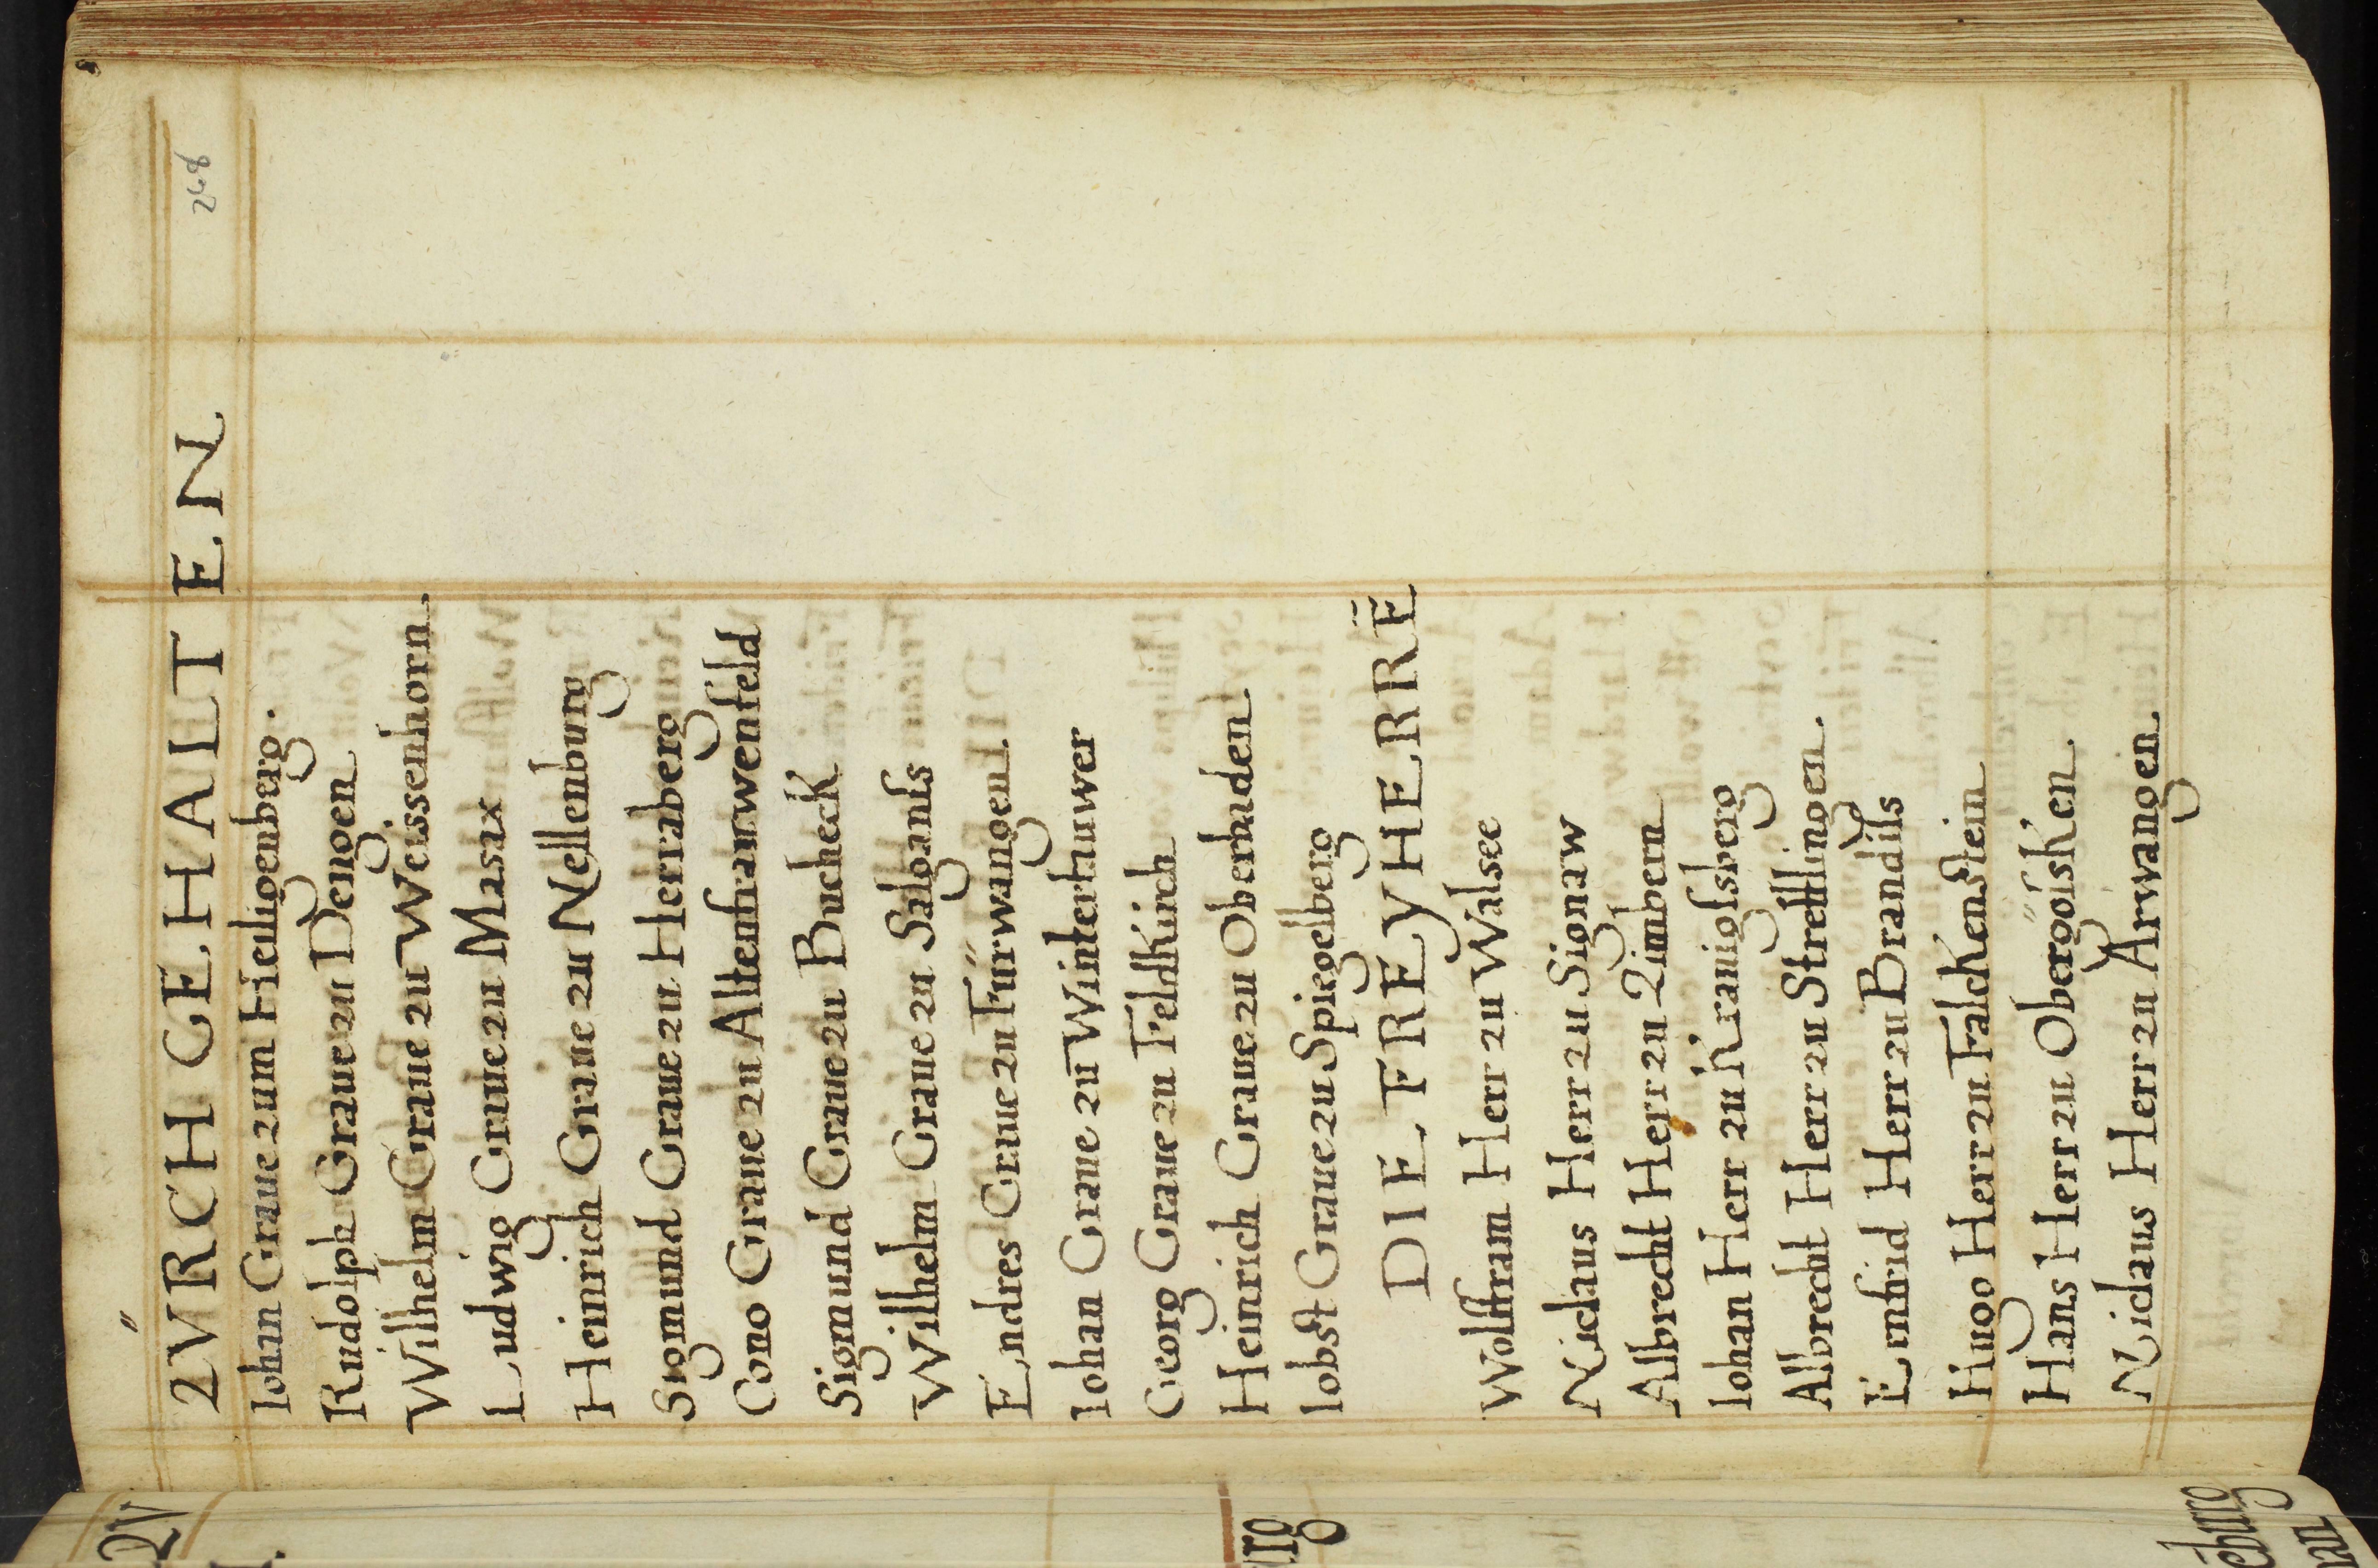 248
ZVRCH GEHALTEN
Iohan Graue zum Heiligenberg.
Rudolph Graue zu Dengen
Wilhelm Graue zu Weissenhorn.
Ludwig Graue zu Masax
Heinrich Graue zu Nellenburg
Sigmund Graue zu Herraberg
Cono Graue zu Altenfrauwenfeld
Sigmund Graue zu BuchecK
Wilhelm Graue zu Salganſs
Endres Graue zu Fürwangen.
Iohan Graue zu Winterthuwer
Georg Graue zu FeldKirch
Heinrich Graue zu Oberbaden
Iobst Graue zu Spiegelberg
DIE FREYHERRĒ
Wolffram Herr zu Walsee
Niclaus Herr zu Signaw
Albrecht Herr zu Zimbern
Iohan Herr zu Kranigſsberg
Albrecht Herr zu Strettlingen.
Emfrid Herr zu Brandiſs
Hugo Herr zu FalcKenstein
Hans Herr zu ObergöſsKen
Niclaus Herr zu Arwangen
ZV
urg